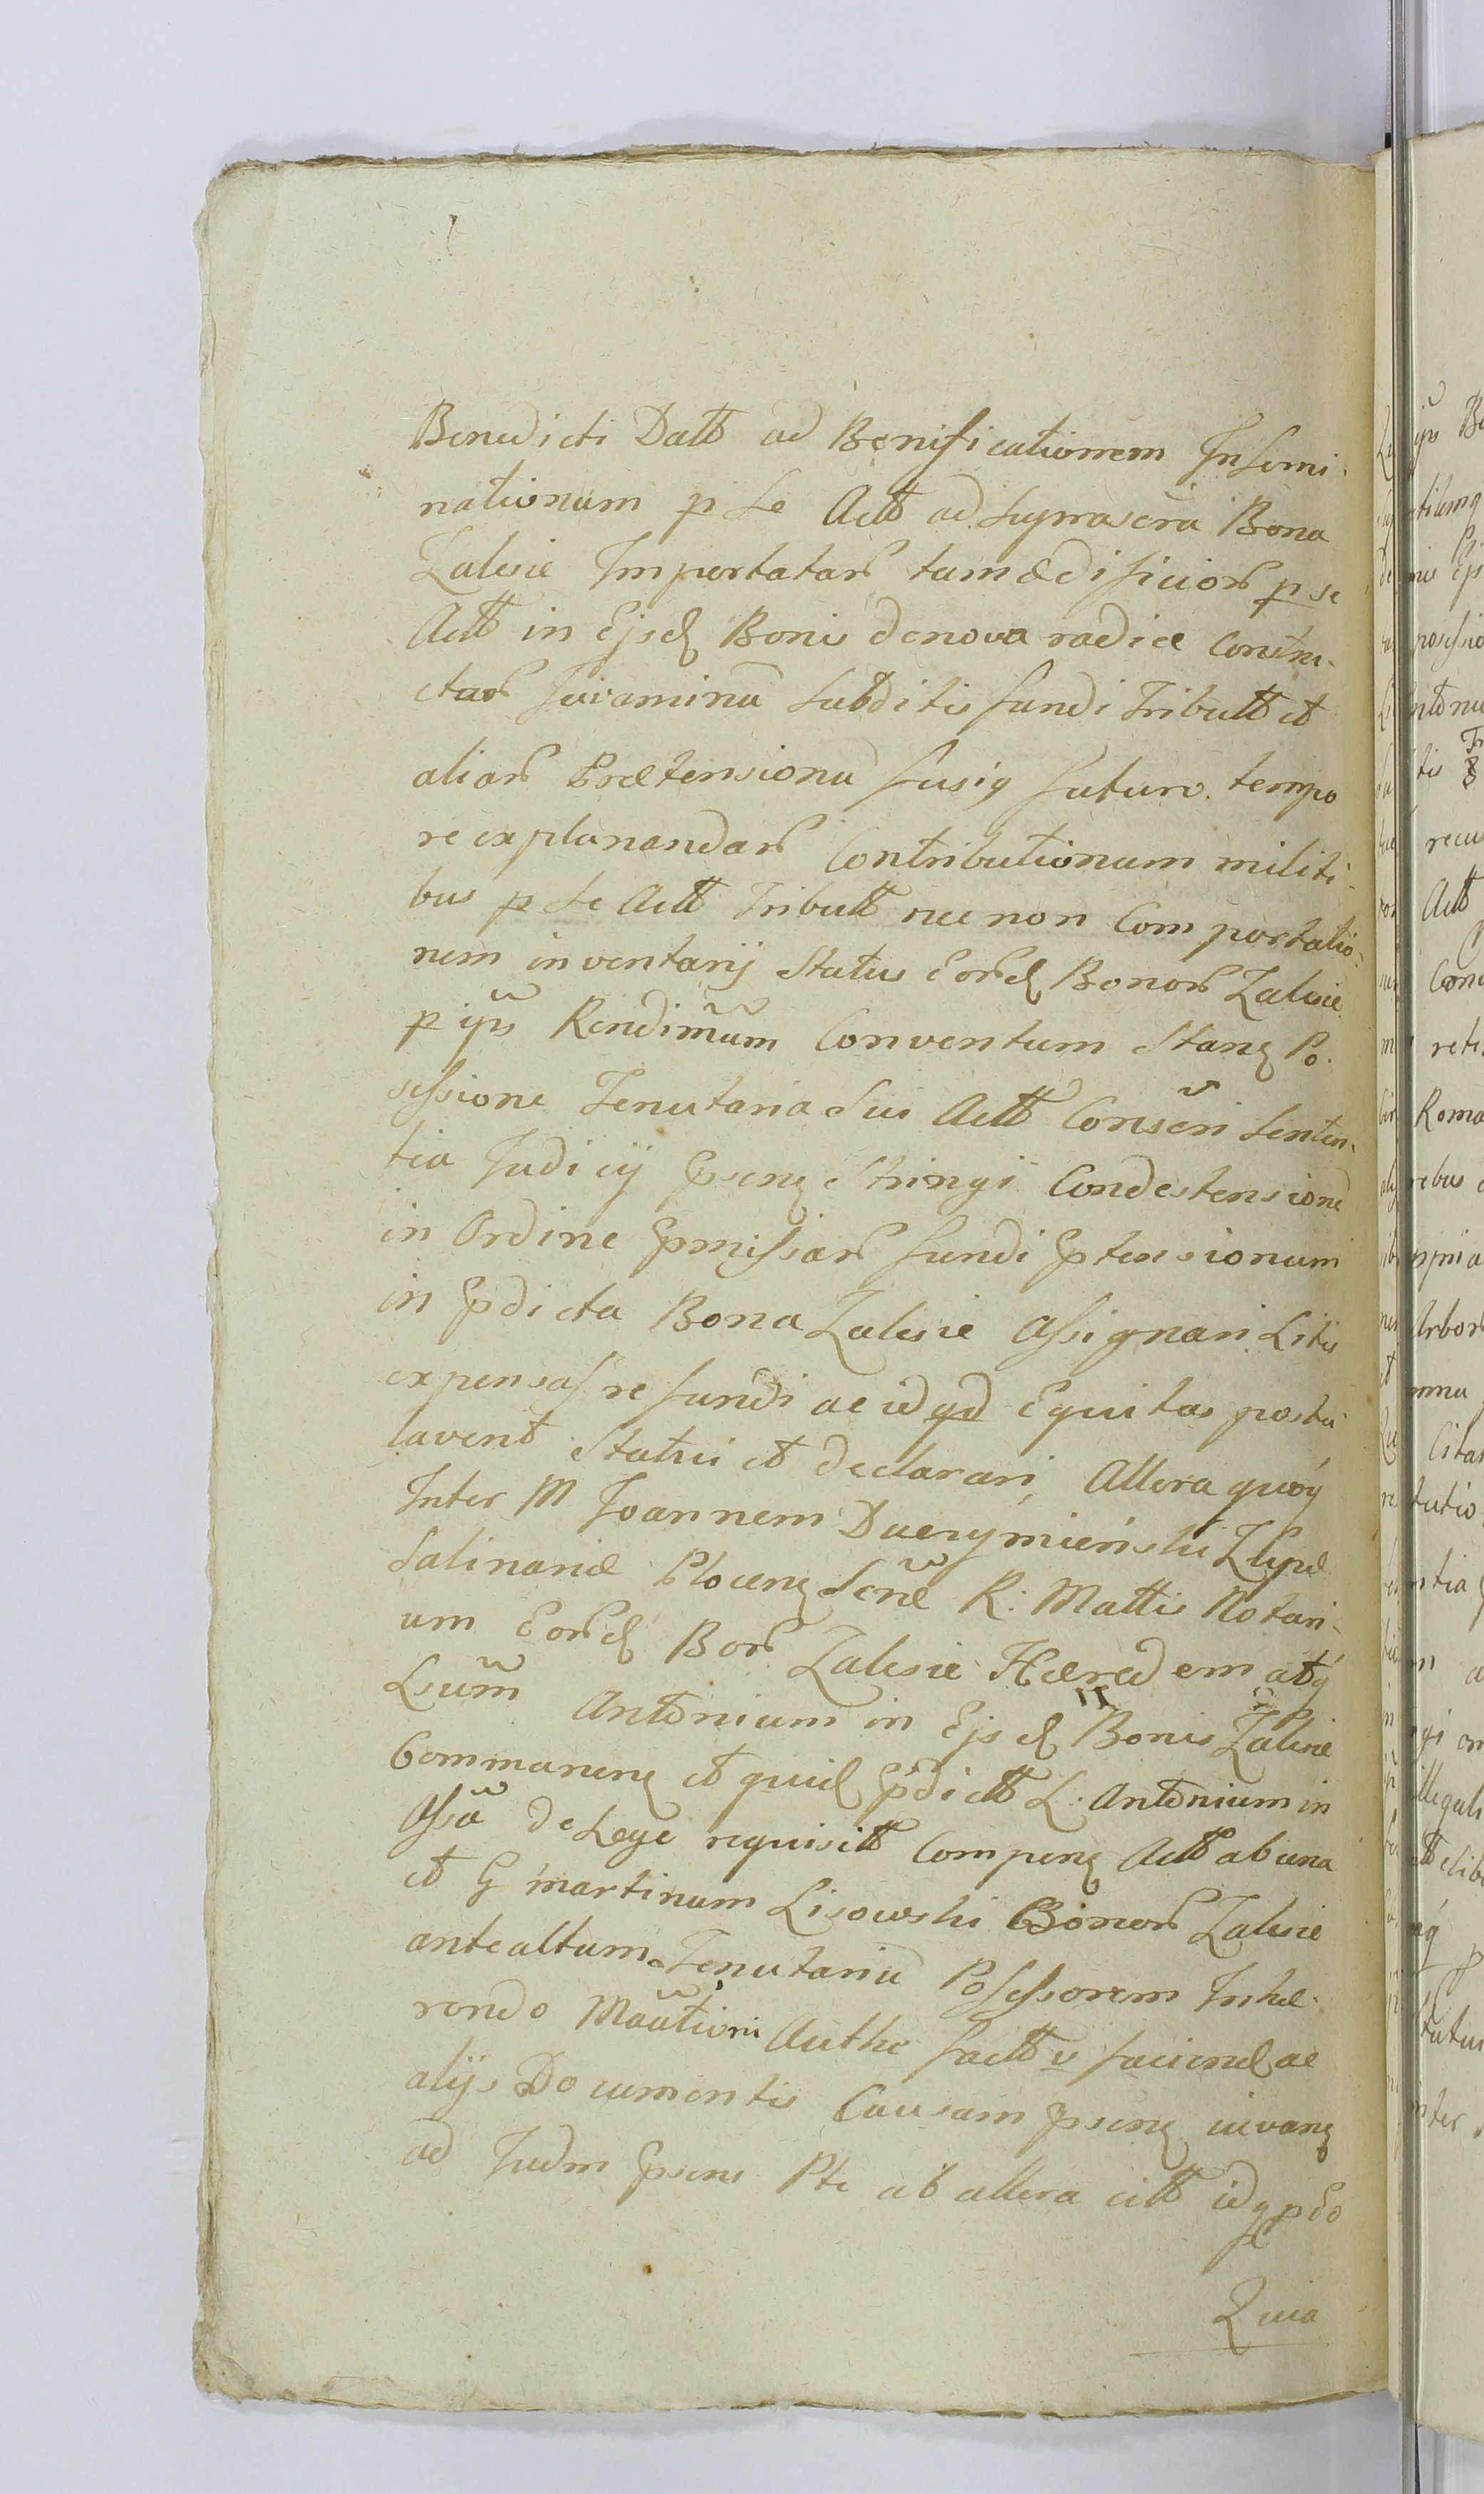 Benedicti Datt ad Bonificationem Insemi-
nationum p se Actt ad suprascra Bona
Zalesie Importatar tam ædificior p se
Actt in Ejsd Bonis denova radice constru-
ctar Juvaminu Subditis fundi Tributt et
aliar Prætensionu fusiq futuro tempo
re explanandar Contributionum militi-
bus p se Actt Tributt nec non Comportatio-
nem inventarij Status Eord Bonor Zalesie
p ips Rendimum Conventum Stanq Po-
sessione Tenutaria sui Actt Conscri Senten-
tia Judicij Pseng Stringi Condestensione
in Ordine Pmissar fundi Ptensionum
in Pdicta Bona Zalesie Assignari Litis
expensas refundi ac id qd Equitas postu-
laverit Statui et declarari, Altera quoq
Inter M Joannem Duczymienski Zupæ
Salinariæ Plocenq Scræ R: Mattis Notari-
um Eord Bor Zalesie Hæredem atq
Lsum Antonium in Ejsd Bonis Zalesie
Commanenq et quid Pdictt L. Antonium in
Assa de Lege requisitt Comperq Actt ab una
et G martinum Lisowski Bonor Zalesie
ante altum Tenutariu Possessorem Inhæ-
rendo Mautioni Authc factt v faciend ac
alijs Documentis Causam Psenq iuvanq
ad Judm Psens Pte ab altera citt idq pdo
Quia